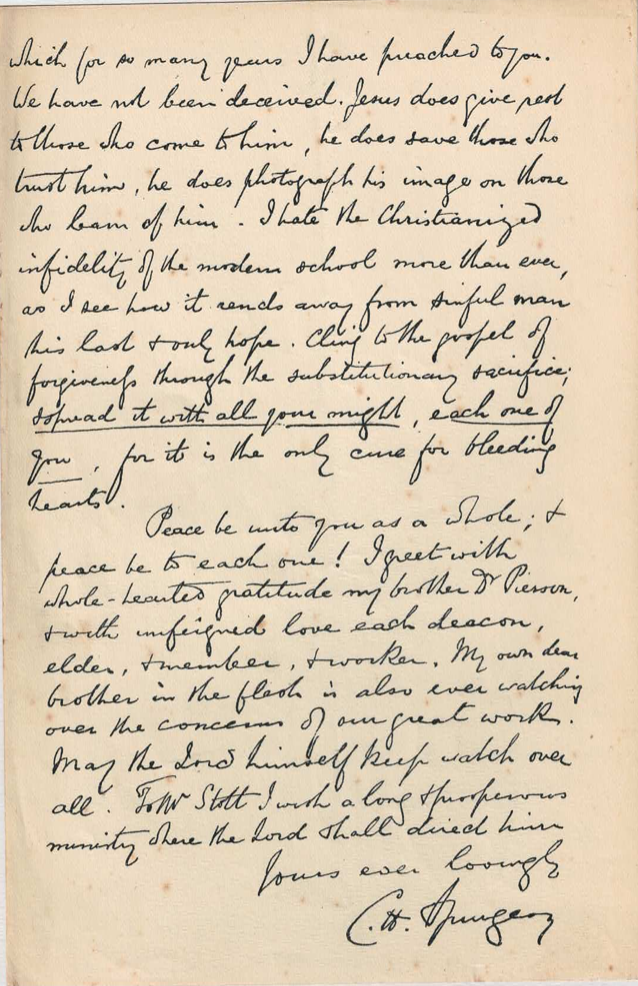 which for so many years I have preached to you.
We have not been deceived. Jesus does give rest
to those who come to him, he does save those who
trust him, he does photograph his image on those
who learn of him. I hate the Christianized
infidelity of the modern school more than ever,
as I see how it rends away from sinful man
his last & only hope. Cling to the gospel of
forgiveness through the substitutionary sacrifice;
spread it with all your might, each one of
you, for it is the only cure for bleeding
hearts.
Peace be unto you as a whole; &
peace be to each one! I greet with
whole-hearted gratitude my brother Dr Pierson,
& with unfeigned love each deacon,
elder, & member, & worker. My own dear
brother in the flesh is also ever watching
over the concerns of our great work.
May the Lord himself keep watch over
all. To Mr Stott I wish a long & prosperous
ministry where the Lord shall direct him
Yours ever lovingly
C. H. Spurgeon